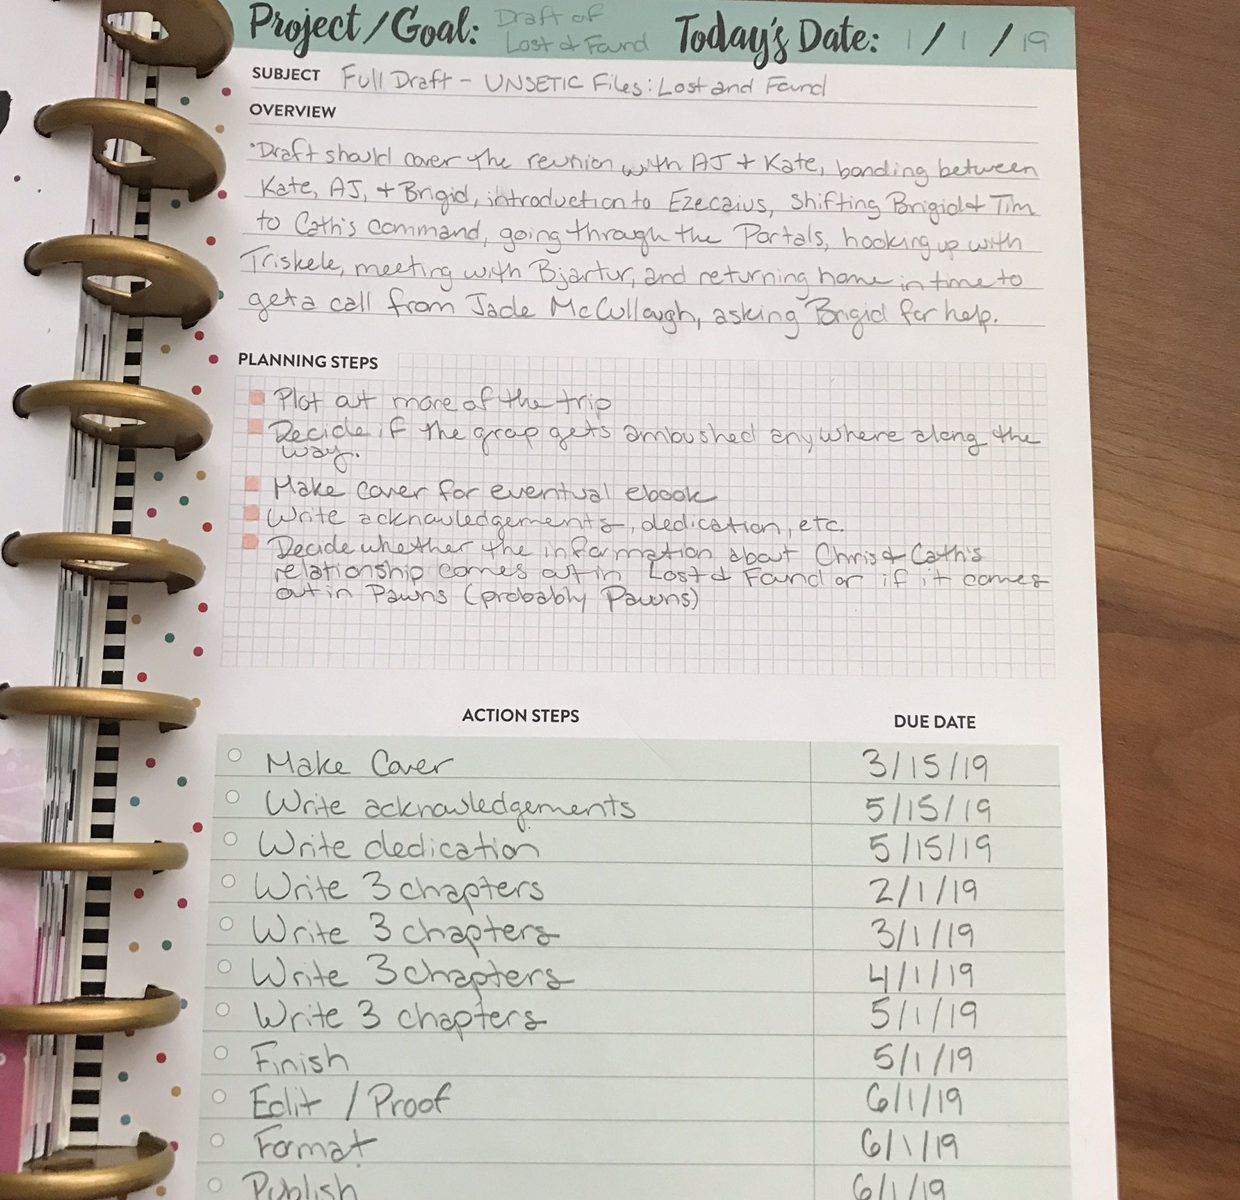 Project/Goal: Draft of Lost & Found Today's Date: 1/1/19
SUBJECT Full Draft - UNSETIC Files: Lost and Found
OVERVIEW
•Draft should cover the reunion with AJ + Kate, bonding between
Kate, AJ, + Brigid, introduction to Ezecaius, shifting Brigid & Tim
to Cath's command, going through the Portals, hooking up with
Triskele, meeting with Bjartur, and returning home in time to
get a call from Jade McCullough, asking Brigid for help.
PLANNING STEPS
Plot out more of the trip
Decide if the group gets ambushed anywhere along the
way.
Make cover for eventual ebook
Write acknowledgements, dedication, etc.
Decide whether the information about Chris & Cath's
relationship comes out in Lost & Found or if it comes
out in Pawns (probably Pawns)
ACTION STEPS DUE DATE
Make Cover 3/15/19
Write acknowledgements 5/15/19
Write dedication 5/15/19
Write 3 chapters 2/1/19
Write 3 chapters 3/1/19
Write 3 chapters 4/1/19
Write 3 chapters 5/1/19
Finish 5/1/19
Edit / Proof 6/1/19
Format 6/1/19
Publish 6/1/19